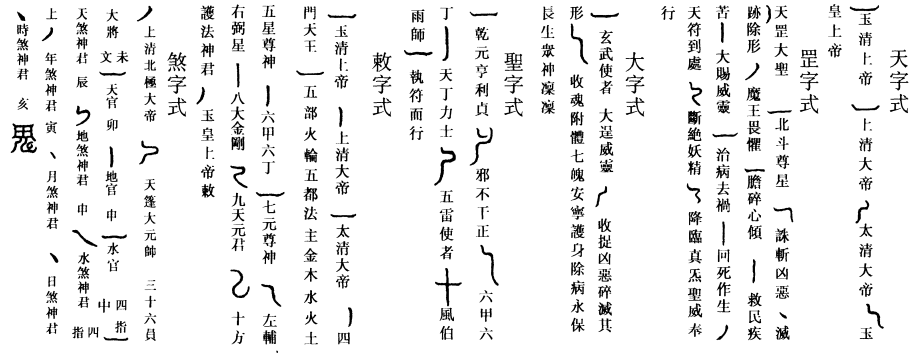 天字式
玉清上帝 上清大帝 太清大帝 玉
皇上帝
罡字式
天罡大聖 北斗尊星 誅斬凶惡 滅
跡除形 魔王畏懼 膽碎心傾 救民疾
苦 大賜威靈 治病去禍 回死作生
天符到處 斷絕妖精 降臨真炁聖威奉
行
大字式
玄武使者 大逞威靈 收捉凶惡碎滅其
形 收魂附體七魄安寧護身除病永保
長生眾神凜凜
聖字式
乾元亨利貞 邪不干正 六甲六
丁 天丁力士 五雷使者 風伯
雨師 執符而行
敕字式
玉清上帝 上清大帝 太清大帝 四
門天王 五部火輪五都法主金木水火土
五星尊神 六甲六丁 七元尊神 左輔
右弼星 八大金剛 九天元君 十方
護法神君 玉皇上帝敕
煞字式
上清北極大帝 天篷大元帥 三十六員
大將 未文 天官 卯 地官 申 水官 四指中
天煞神君 辰 地煞神君 申 水煞神君 四指
上 年煞神君 寅 月煞神君 日煞神君
時煞神君 亥